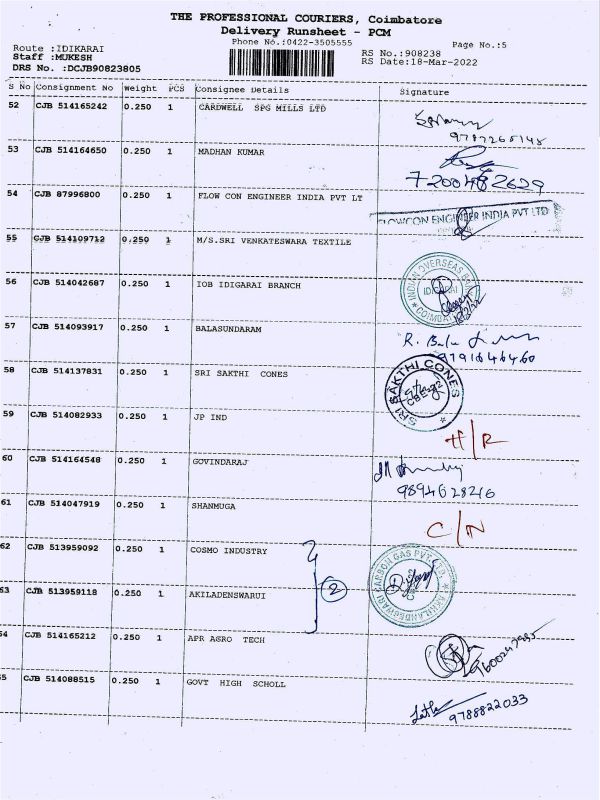 THE PROFESSIONAL COURIERS, Coimbatore
Delivery Runsheet - PCM
Phone No.:0422-3505555
Page No.:5
Route :IDIKARAI
Staff :MUKESH
DRS No. :DCJB90823805
RS No.:908238
RS Date:18-Mar-2022
S No Consignment No Weight PCS Consignee Details Signature
52 CJB 514165242 0.250 1 CARDWELL SPG MILLS LTD
9787265148
53 CJB 514164650 0.250 1 MADHAN KUMAR
7200482629
54 CJB 87996800 0.250 1 FLOW CON ENGINEER INDIA PVT LT
FLOWCON ENGINEER INDIA PVT LTD
55 CJB 514109712 0.250 1 M/S.SRI VENKATESWARA TEXTILE
56 CJB 514042687 0.250 1 IOB IDIGARAI BRANCH
INDIAN OVERSEAS
IDIGARAI
COIMBATORE
57 CJB 514093917 0.250 1 BALASUNDARAM
R. Bala
58 CJB 514137831 0.250 1 SRI SAKTHI CONES
SRI SAKTHI CONES
59 CJB 514082933 0.250 1 JP IND
H/R
60 CJB 514164548 0.250 1 GOVINDARAJ
9894628216
61 CJB 514047919 0.250 1 SHANMUGA
C/N
62 CJB 513959092 0.250 1 COSMO INDUSTRY
2
AKHILANDESWARI CARBON GAS PVT. LTD.
63 CJB 513959118 0.250 1 AKILADENSWARUI
54 CJB 514165212 0.250 1 APR AGRO TECH
9600247995
55 CJB 514088515 0.250 1 GOVT HIGH SCHOLL
Latha 9788822033